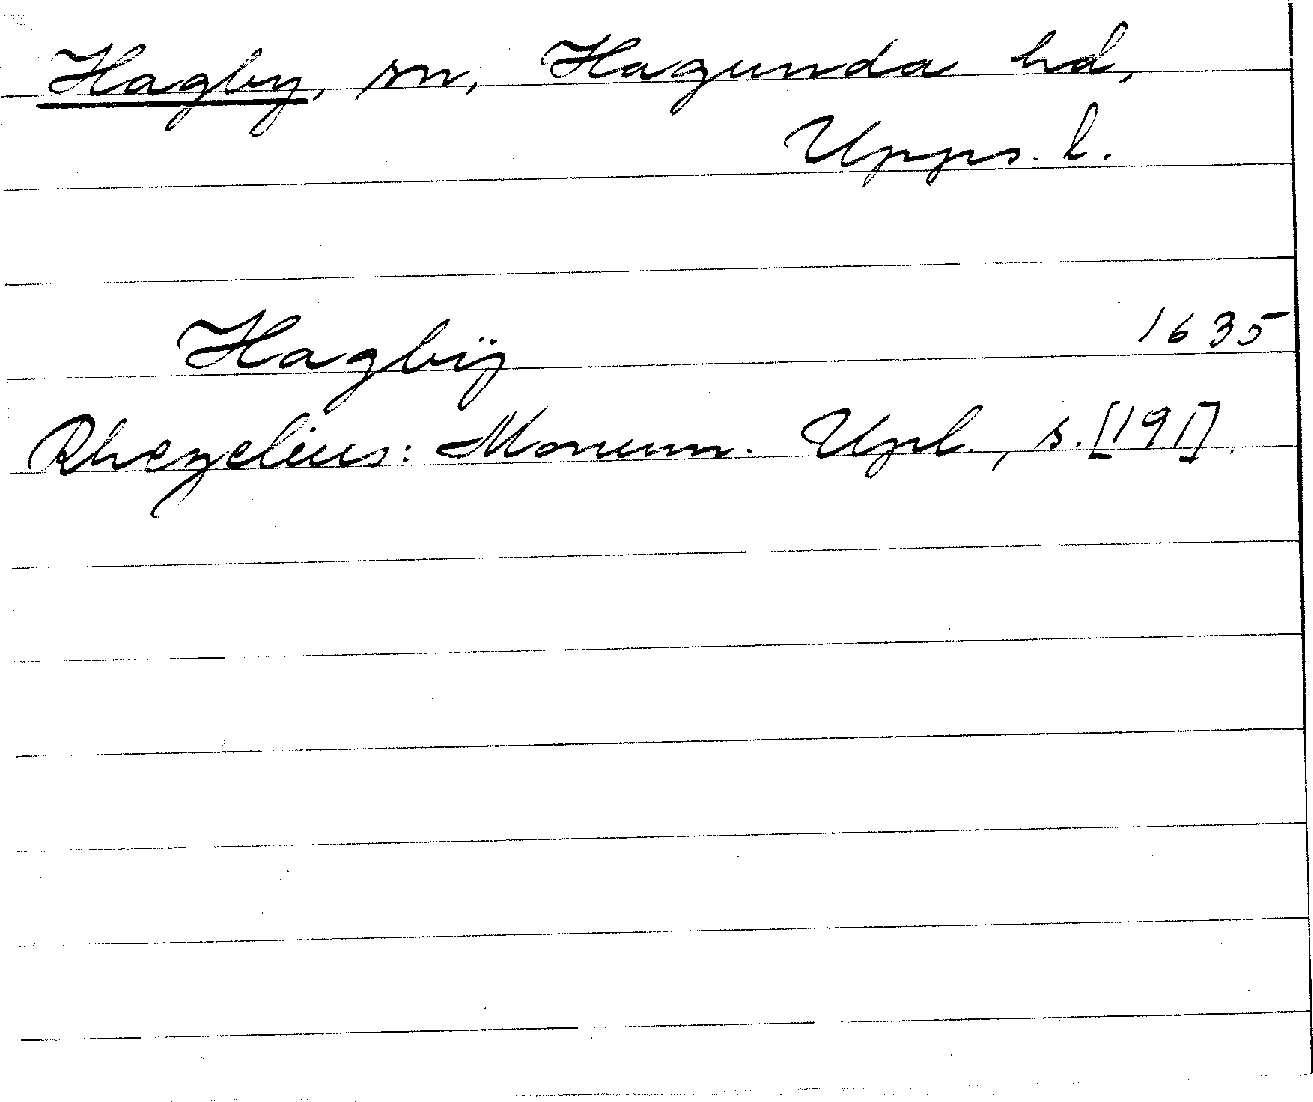 Hagby, sn, Hagunda hd,
Upps. l.
Hagbÿ 1635
Rhezelius: Monum. Upl., s. [191].